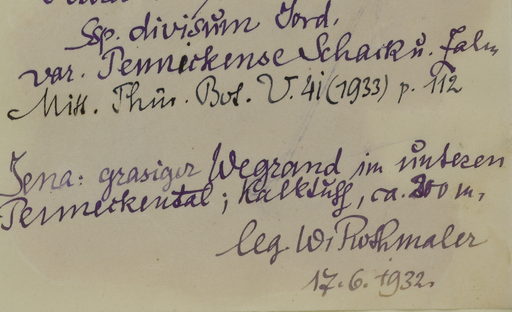 Ssp. divisum Jord.
var. Penneckense Schack u.
Mitt. Thür. Bot. V. 41 (1933) p. 112
Jena: grasiger Wegrand im unteren
Penneckental; Kalktuff, ca. 200 m,
leg. W. Rothmaler
17.6.1932.